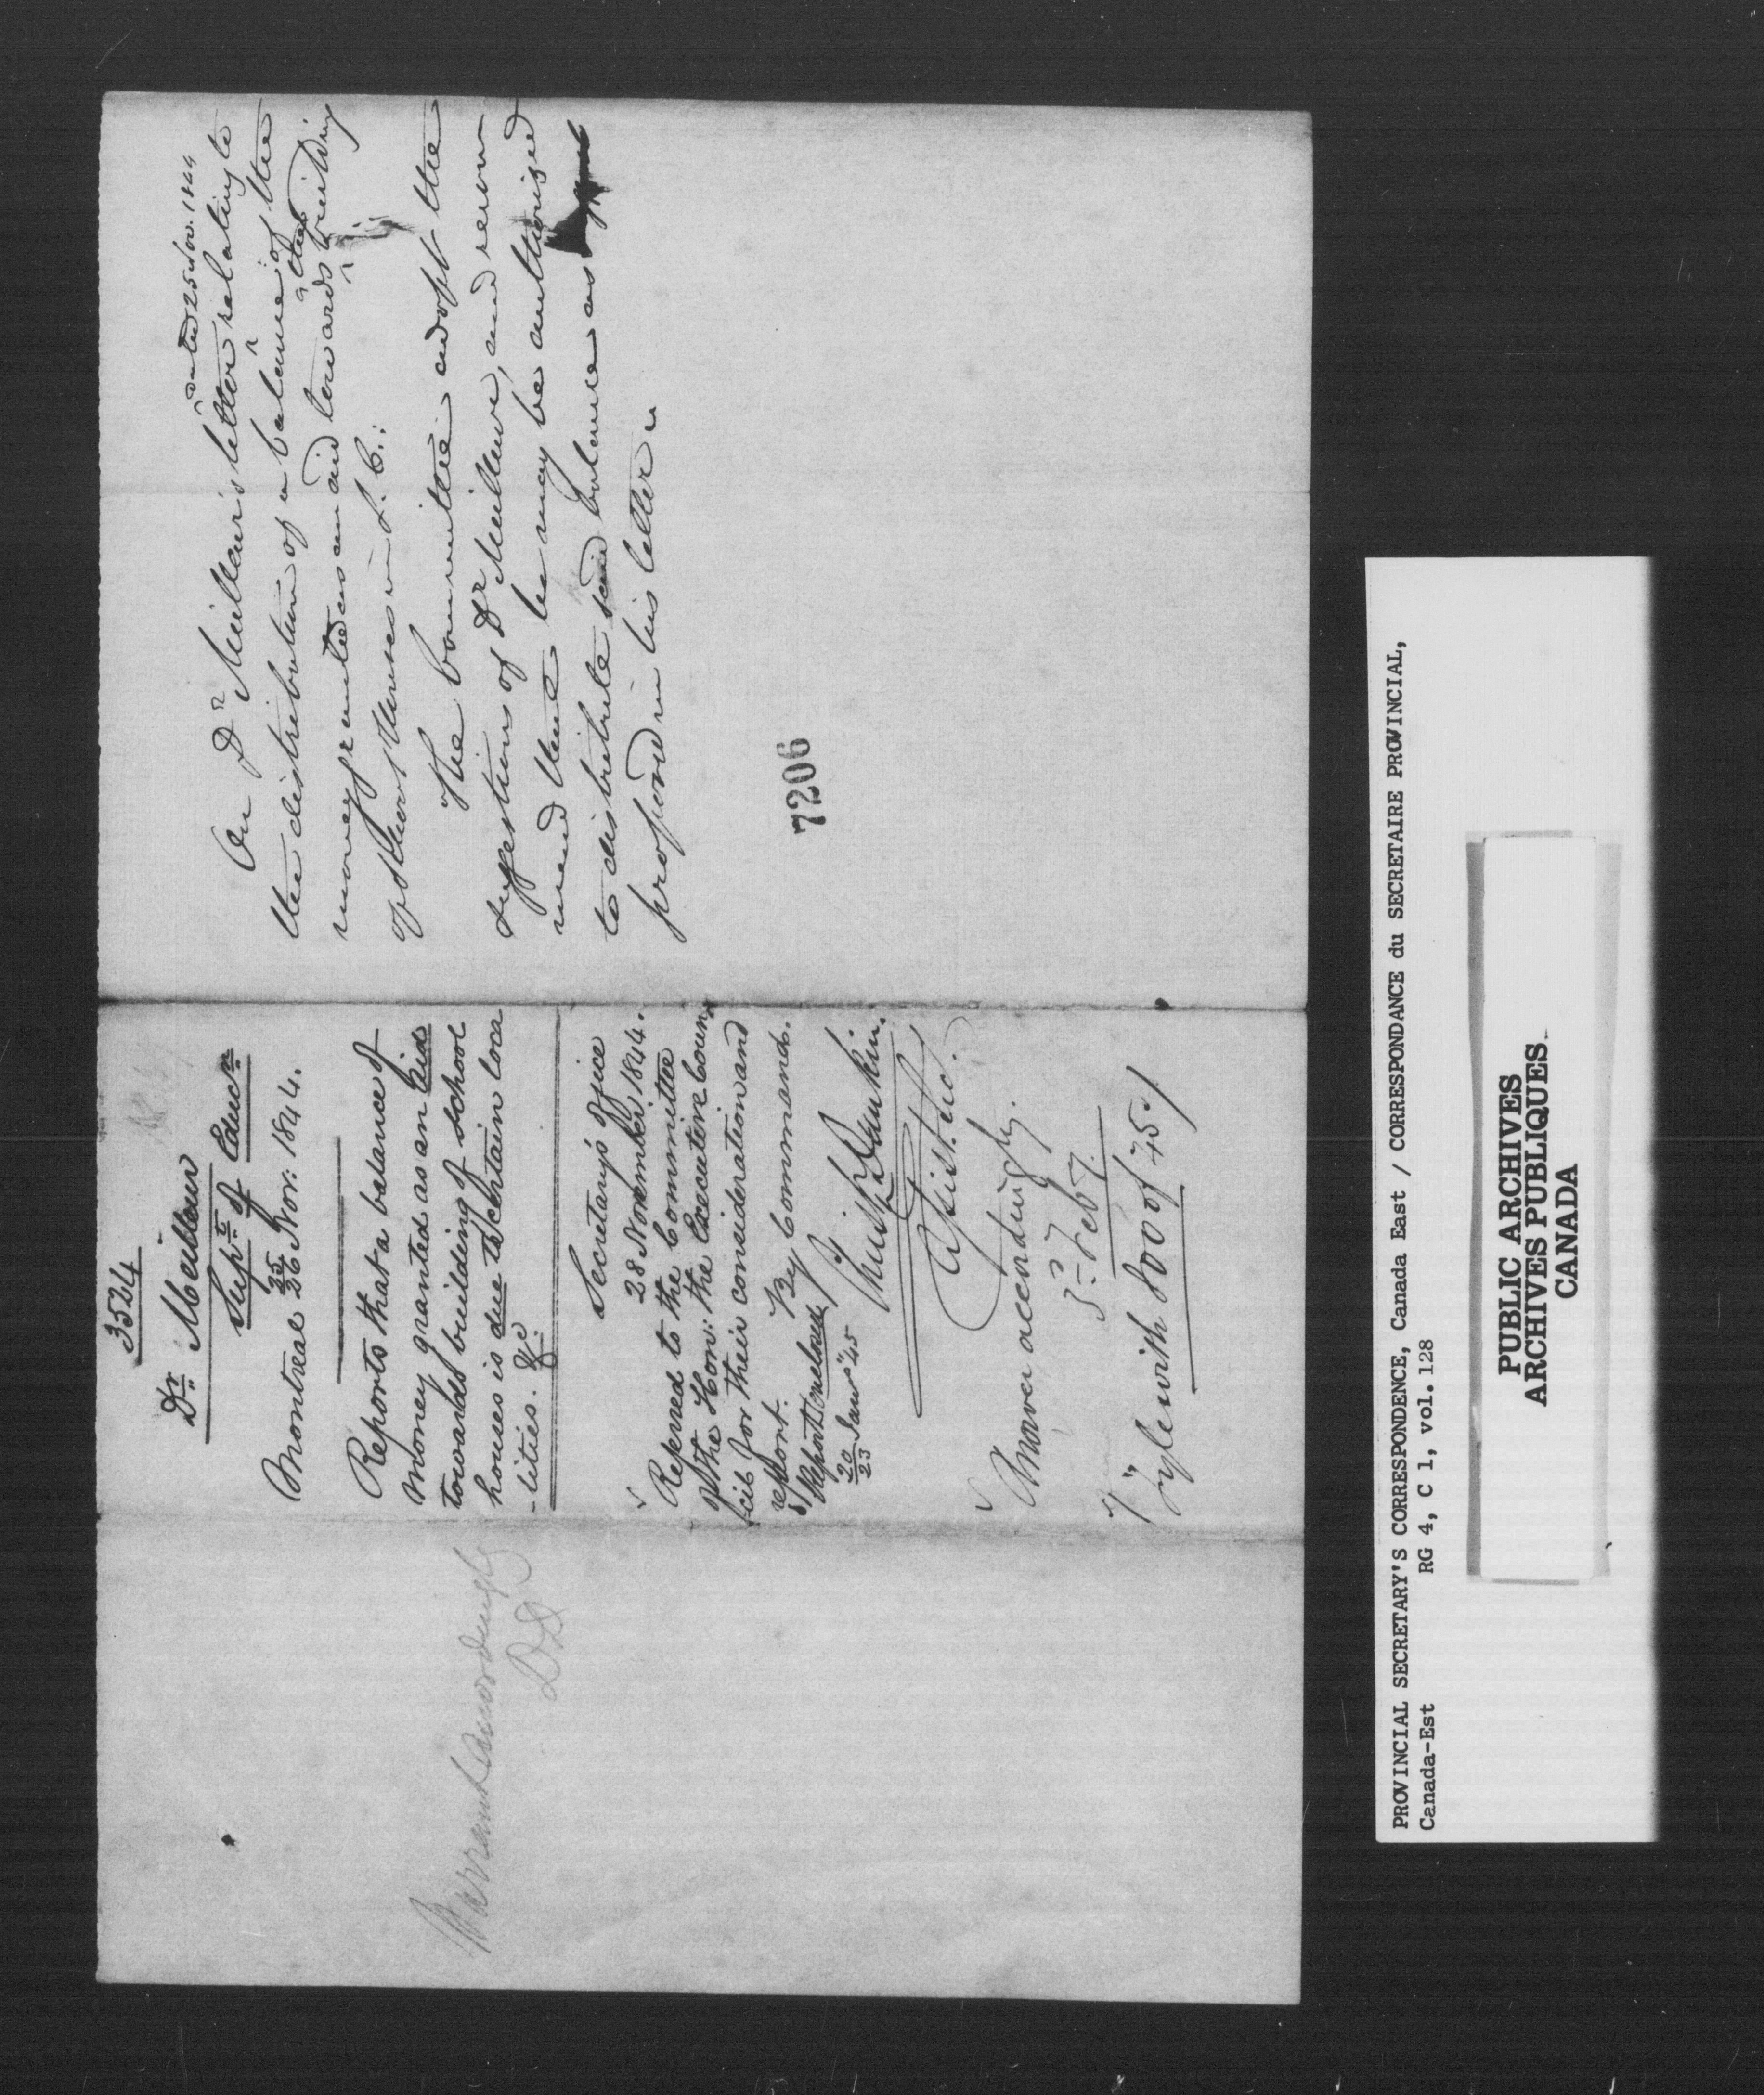 3524
Dr. Meilleur
Supt. of Educn.
Montreal 25/26 Nov: 1844.
Reports that a balance of
money granted as an Aid
towards building of school
houses is due to certain loca
-lities. &c
Secretary's Office
28 November 1844.
Referred to the Committee
of the Hon: the Executive Coun-
cil for their consideration and
report.
By Command.
Report enclosed
20/23 Jany "45
Christr. Dunkin.
Assist. Sec.
Answer accordingly.
5 Feby.
File with 800 of 45
Warrant accordingly
DD
On Dr Meilleur's letter ^dated 25 Nov. 1844 relating to
the distribution of a balance of the
money granted as an aid towards ^the building
of School Houses in L. C.:
The Committee adopt the
suggestions of Dr Meilleur, and recom
mend that he may be authorized
to distribute said balance as
proposed in his letter
7206
PROVINCIAL SECRETARY'S CORRESPONDENCE, Canada East / CORRESPONDANCE du SECRETAIRE PROVINCIAL,
Canada-Est RG 4, C 1, vol. 128
PUBLIC ARCHIVES
ARCHIVES PUBLIQUES
CANADA